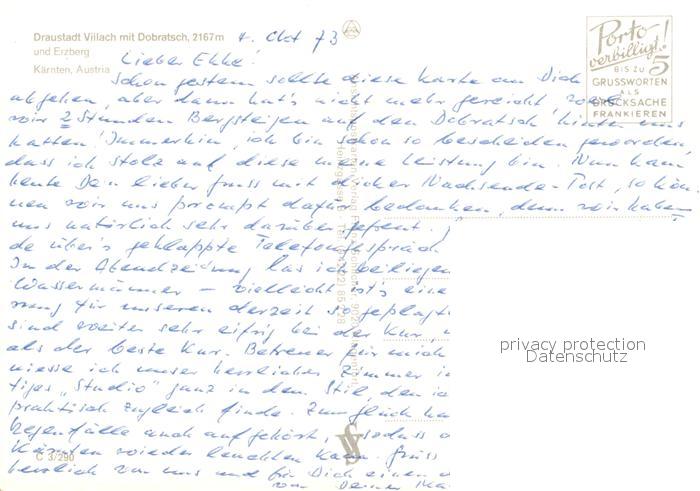 Draustadt Villach mit Dobratsch, 2167 m
und Erzberg
Kärnten, Austria
4. Okt 73
Porto-
verbilligt!
BIS ZU 5
GRUSSWORTEN
ALS
DRUCKSACHE
FRANKIEREN
Lieber Ekke!
Schon gestern sollte diese Karte an Dich
abgehen, aber dann hat's nicht mehr gereicht,
wir 2 Stunden Bergsteigen auf den Dobratsch hinter uns
hatten! Immerhin, ich bin schon so bescheiden geworden,
dass ich stolz auf diese meine Leistung bin. Nun kam
heute Dein lieber Gruss mit dicker Nachsende-Post, so kön-
nen wir uns prompt dafür bedanken, denn wir haben
uns natürlich sehr darüber gefreut.
de über's geklappte Telefongespräch
In der Abendzeidung las ich beiliegen
Wassermänner - vielleicht ist's eine
für unseren derzeit so geplagt
sind weiter sehr eifrig bei der Kur,
als der beste Kur. Betreuer für mich
niesse ich unser herrliches Zimmer
tiges „Studio" ganz in dem Stil, den ic
praktisch zugleich finde. Zum Glück ha
Regenfälle auch aufgehört, sodass
Kärnten wieder leuchten kann. Gruss
herzlich von uns und für Dich einen
von Deiner
C 3/290
privacy protection
Datenschutz